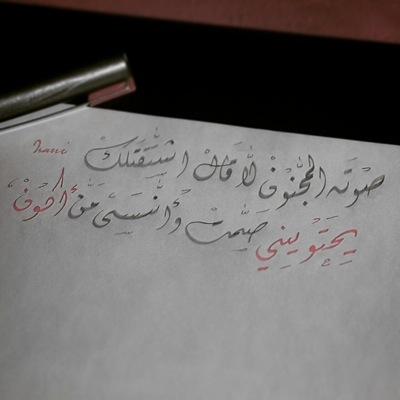 صوته المجنون لا قال اشتقتلك
يحتويني صمت وأنسى من أكون